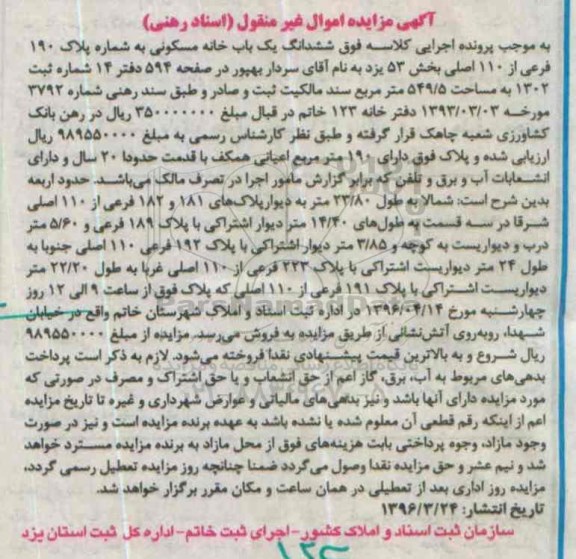 آگهی مزایده اموال غیر منقول (اسناد رهنی)
به موجب پرونده اجرایی کلاسه فوق ششدانگ یک باب خانه مسکونی به شماره پلاک ۱۹۰
فرعی از ۱۱۰ اصلی بخش ۵۳ یزد به نام آقای سردار بهپور در صفحه ۵۹۴ دفتر ۱۴ شماره ثبت
۱۳۰۲ به مساحت ۵۴۹/۵ متر مربع سند مالکیت ثبت و صادر و طبق سند رهنی شماره ۳۷۹۲
مورخه ۱۳۹۳/۰۳/۰۳ دفتر خانه ۱۲۳ خاتم در قبال مبلغ ۳۵۰۰۰۰۰۰۰ ریال در رهن بانک
کشاورزی شعبه چاهک قرار گرفته و طبق نظر کارشناس رسمی به مبلغ ۹۸۹۵۵۰۰۰۰ ریال
ارزیابی شده و پلاک فوق دارای ۱۹۰ متر مربع اعیانی همکف با قدمت حدودا ۲۰ سال و دارای
انشعابات آب و برق و تلفن که برابر گزارش مامور اجرا در تصرف مالک می‌باشد. حدود اربعه
بدین شرح است: شمالا به طول ۲۳/۸۰ متر به دیوارپلاک‌های ۱۸۱ و ۱۸۲ فرعی از ۱۱۰ اصلی
شرقا در سه قسمت به طول‌های ۱۴/۴۰ متر دیوار اشتراکی با پلاک ۱۸۹ فرعی و ۵/۶۰ متر
درب و دیواریست به کوچه و ۳/۸۵ متر دیوار اشتراکی با پلاک ۱۹۲ فرعی ۱۱۰ اصلی جنوبا به
طول ۲۴ متر دیواریست اشتراکی با پلاک ۲۲۳ فرعی از ۱۱۰ اصلی غربا به طول ۲۲/۲۰ متر
دیواریست اشتراکی با پلاک ۱۹۱ فرعی از ۱۱۰ اصلی که پلاک فوق از ساعت ۹ الی ۱۲ روز
چهارشنبه مورخ ۱۳۹۶/۰۴/۱۴ در اداره ثبت اسناد و املاک شهرستان خاتم واقع در خیابان
شهدا، روبه‌روی آتش‌نشانی از طریق مزایده به فروش می‌رسد. مزایده از مبلغ ۹۸۹۵۵۰۰۰۰
ریال شروع و به بالاترین قیمت پیشنهادی نقدا فروخته می‌شود. لازم به ذکر است پرداخت
بدهی‌های مربوط به آب، برق، گاز اعم از حق انشعاب و یا حق اشتراک و مصرف در صورتی که
مورد مزایده دارای آنها باشد و نیز بدهی‌های مالیاتی و عوارض شهرداری و غیره تا تاریخ مزایده
اعم از اینکه رقم قطعی آن معلوم شده یا نشده باشد به عهده برنده مزایده است و نیز در صورت
وجود مازاد، وجوه پرداختی بابت هزینه‌های فوق از محل مازاد به برنده مزایده مسترد خواهد
شد و نیم عشر و حق مزایده نقدا وصول می‌گردد ضمنا چنانچه روز مزایده تعطیل رسمی گردد،
مزایده روز اداری بعد از تعطیلی در همان ساعت و مکان مقرر برگزار خواهد شد.
تاریخ انتشار: ۱۳۹۶/۳/۲۴
سازمان ثبت اسناد و املاک کشور - اجرای ثبت خاتم - اداره کل ثبت استان یزد